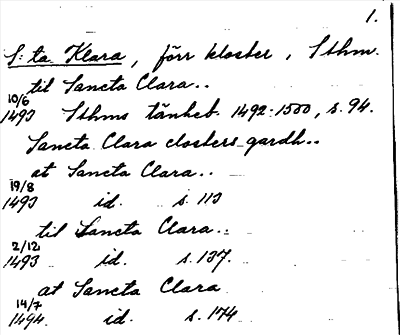 1.
S:ta Klara, förr kloster, Sthm.
til Sancta Clara..
10/6
1493 Sthms tänkeb. 1492-1500, s. 94.
Sancta Clara closters gardh..
at Sancta Clara..
19/8
1493 id. s. 113
til Sancta Clara..
2/12
1493 id. s. 137.
at Sancta Clara
14/7
1494. id. s. 174